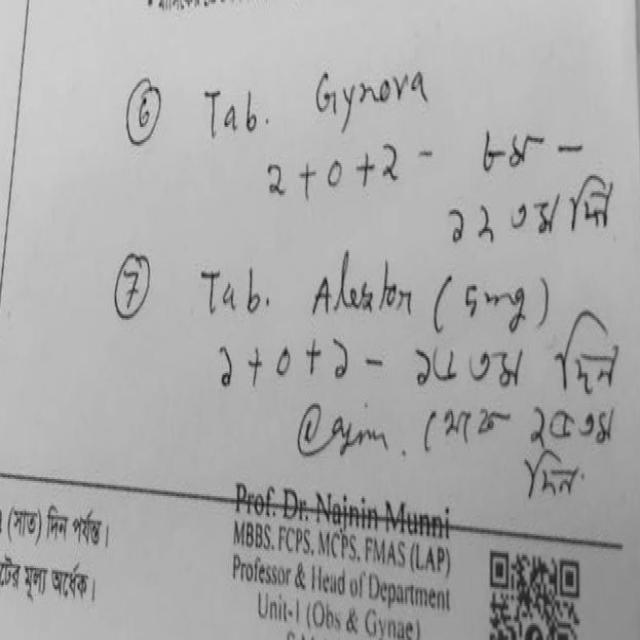 ⑥ Tab. Gynova
2 + 0 + 2 - ৮ম -
১২ তম দিন
⑦ Tab. Alestor (5mg)
১ + ০ + ১ - ১৫ তম দিন
থেকে ২৫ তম
দিন
(সাত) দিন পর্যন্ত।
মূল্য অর্ধেক।
Prof. Dr. Najnin Munni
MBBS, FCPS, MCPS, FMAS (LAP)
Professor & Head of Department
Unit-I (Obs & Gynae)